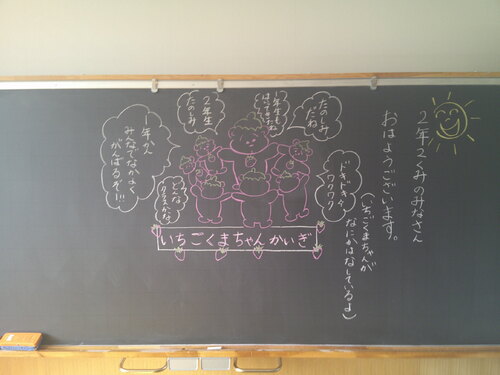 2年2くみのみなさん
おはようございます。
(いちごくまちゃんが
なにかはなしているよ)
たのしみ
だね
1年生も
2年生
たのしみ
1年かん
みんなでなかよく
がんばるぞー!!
ドキドキ
ワクワク
どんな
クラスかな
いちごくまちゃんかいぎ